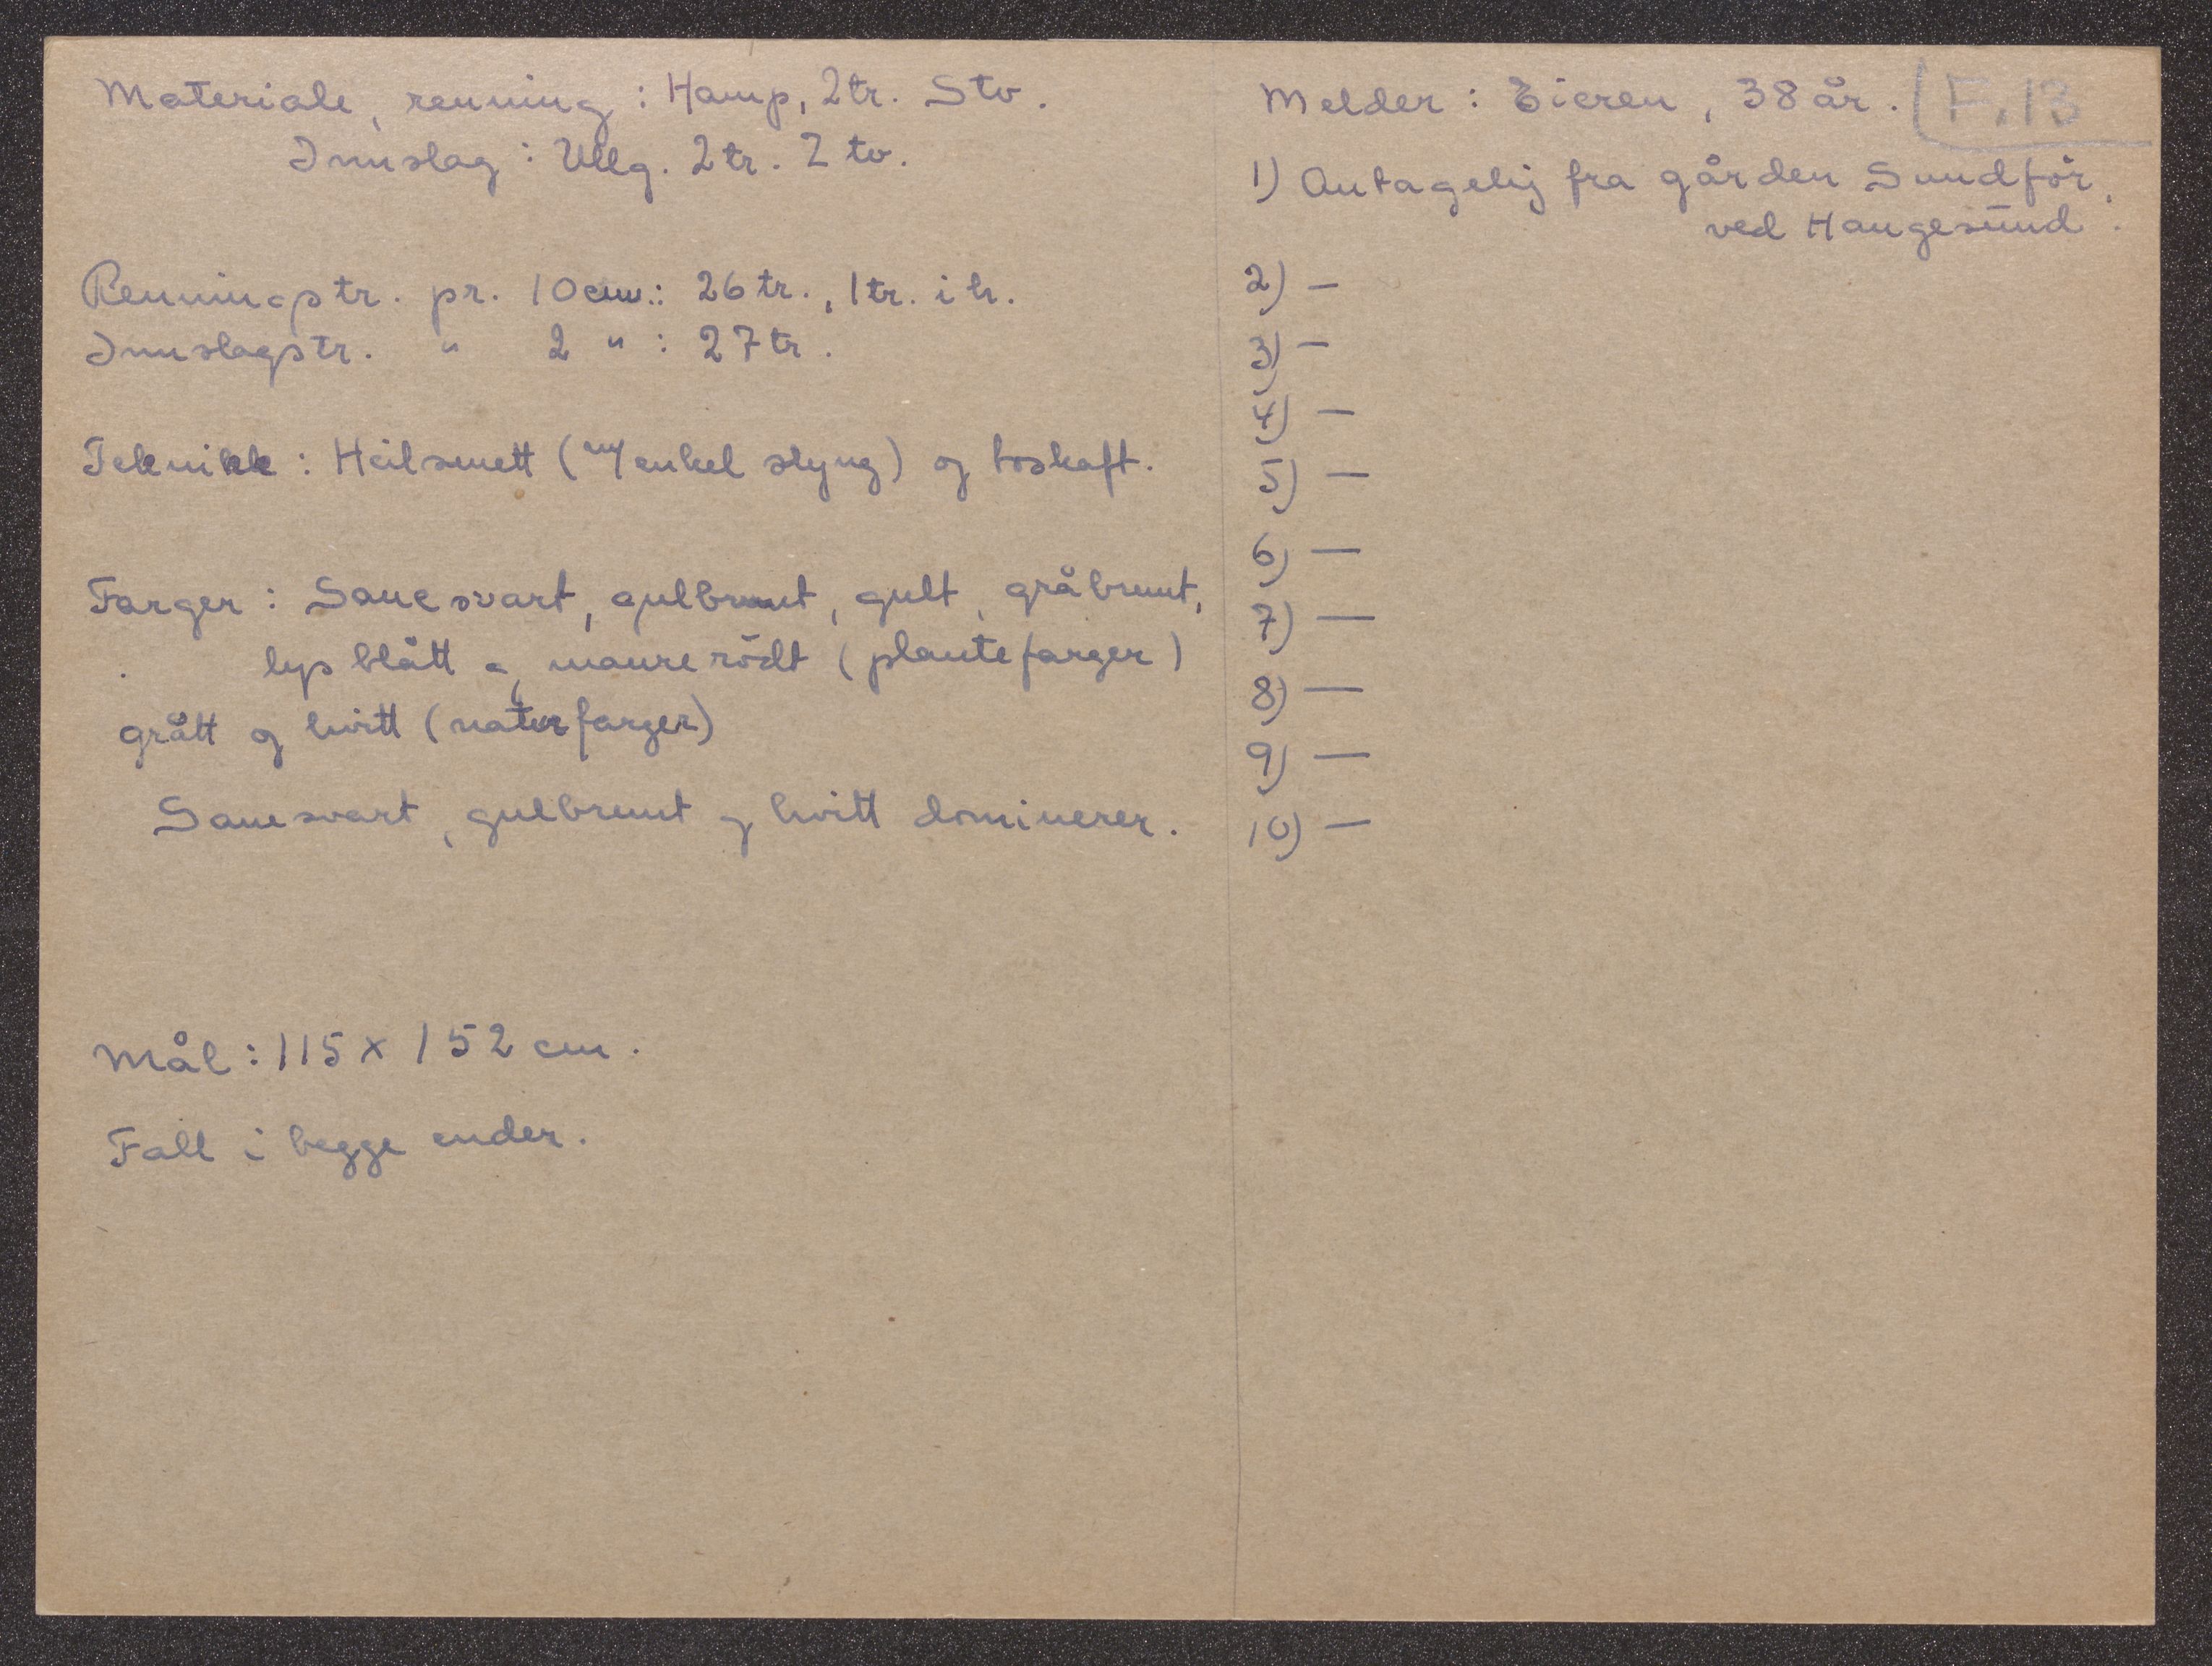 Materiale, renning: Hamp, 2tr. S tv.
Innslag: Ullg. 2tr. Z tv.
Renningstr. pr. 10 cm.: 26 tr., 1 tr. i h.
Innslagstr. " 2 " : 27 tr.
Teknikk: Heilsmett (m/ enkel slyng) og toskaft.
Farger: Sauesvart, gulbrunt, gult, gråbrunt,
lys blått og maurerödt (plantefarger)
grått og hvitt (naturfarger)
Sauesvart, gulbrunt og hvitt dominerer.
Mål: 115 x 152 cm.
Fall i begge ender.
Melder: Eieren, 38 år. F. 13
1) Antagelig fra gården Sundför,
ved Haugesund.
2) —
3) —
4) —
5) —
6) —
7) —
8) —
9) —
10) —